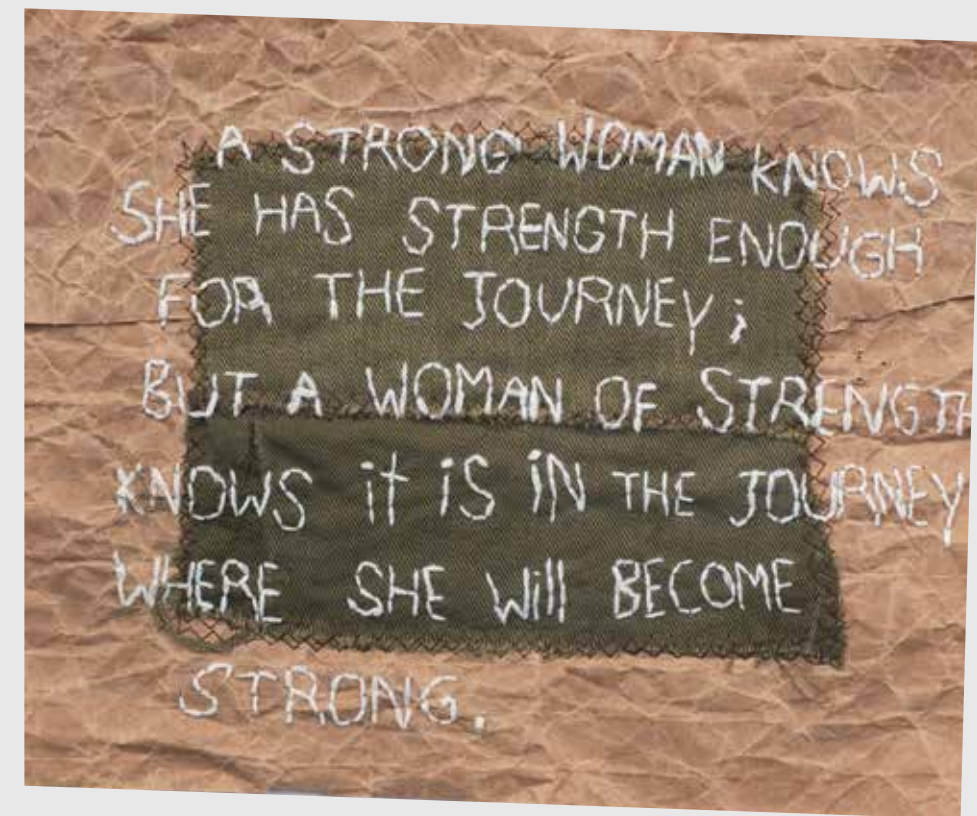 A STRONG WOMAN KNOWS
SHE HAS STRENGTH ENOUGH
FOR THE JOURNEY;
BUT A WOMAN OF STRENGTH
KNOWS it iS iN THE JOURNEY
WHERE SHE Will BECOME
STRONG.